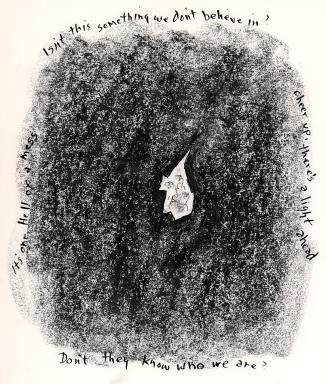 Isn't this something we don't believe in?
cheer up, there's a light ahead
Don't they know who we are?
it's one Hell of a mess